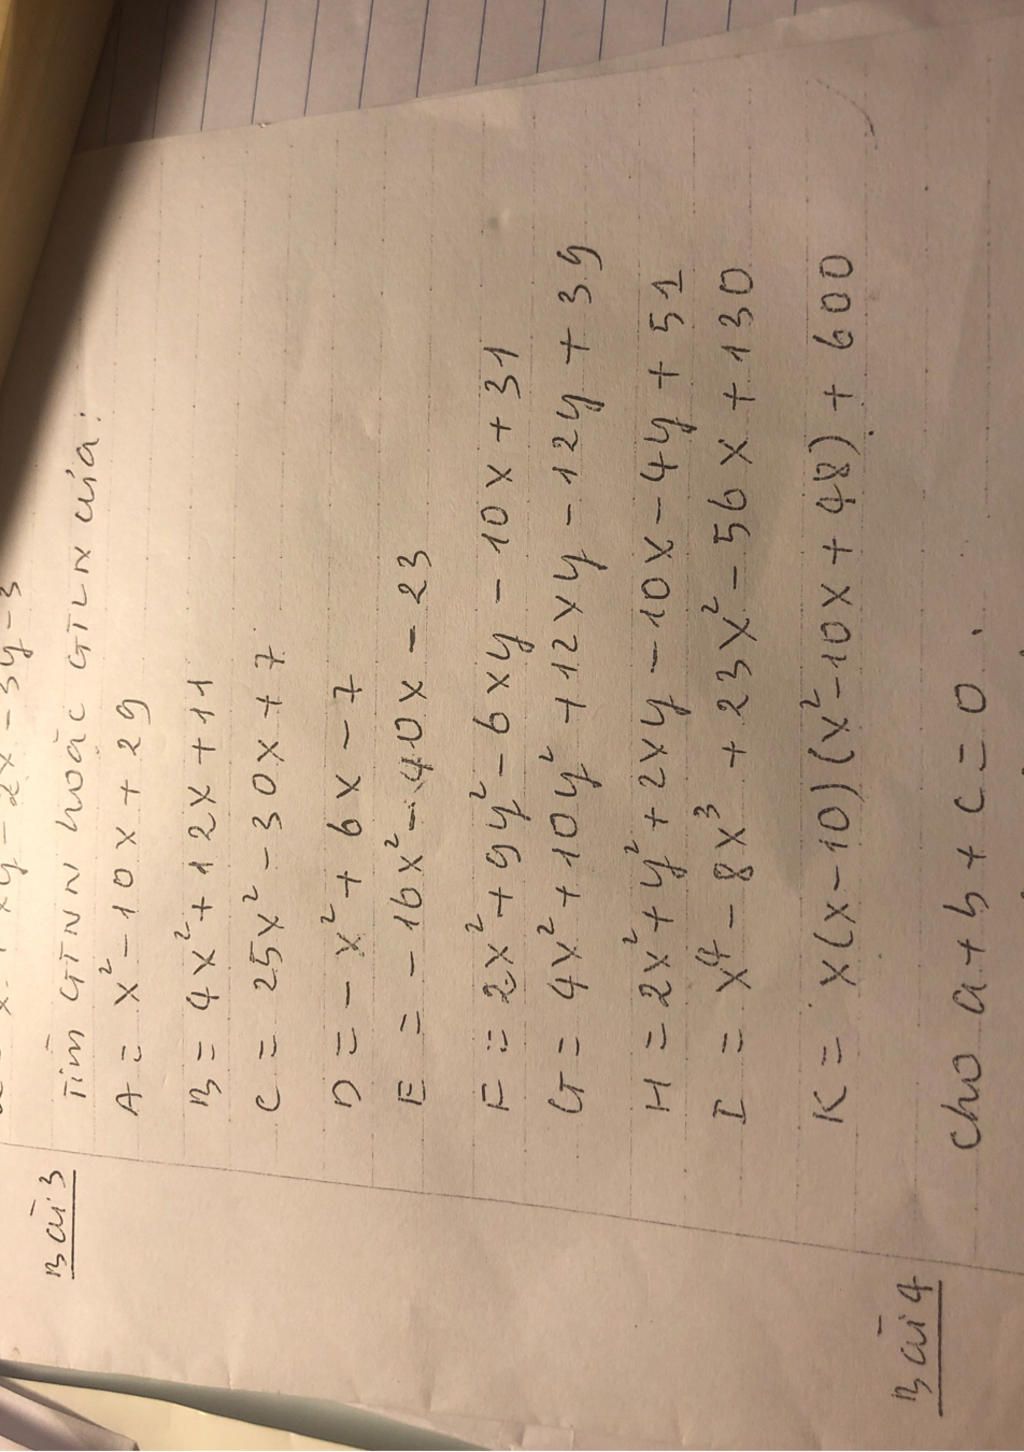 x - 3y - 3
Bài 3 Tìm GTNN hoặc GTLN của:
A = x² - 10x + 29
B = 4x² + 12x + 11
C = 25x² - 30x + 7
D = - x² + 6x - 7
E = - 16x² - 40x - 23
F = 2x² + 9y² - 6xy - 10x + 31
G = 4x² + 10y² + 12xy - 12y + 39
H = 2x² + y² + 2xy - 10x - 4y + 51
I = x⁴ - 8x³ + 23x² - 56x + 130
K = x(x - 10)(x² - 10x + 48) + 600
Bài 4 Cho a + b + c = 0.